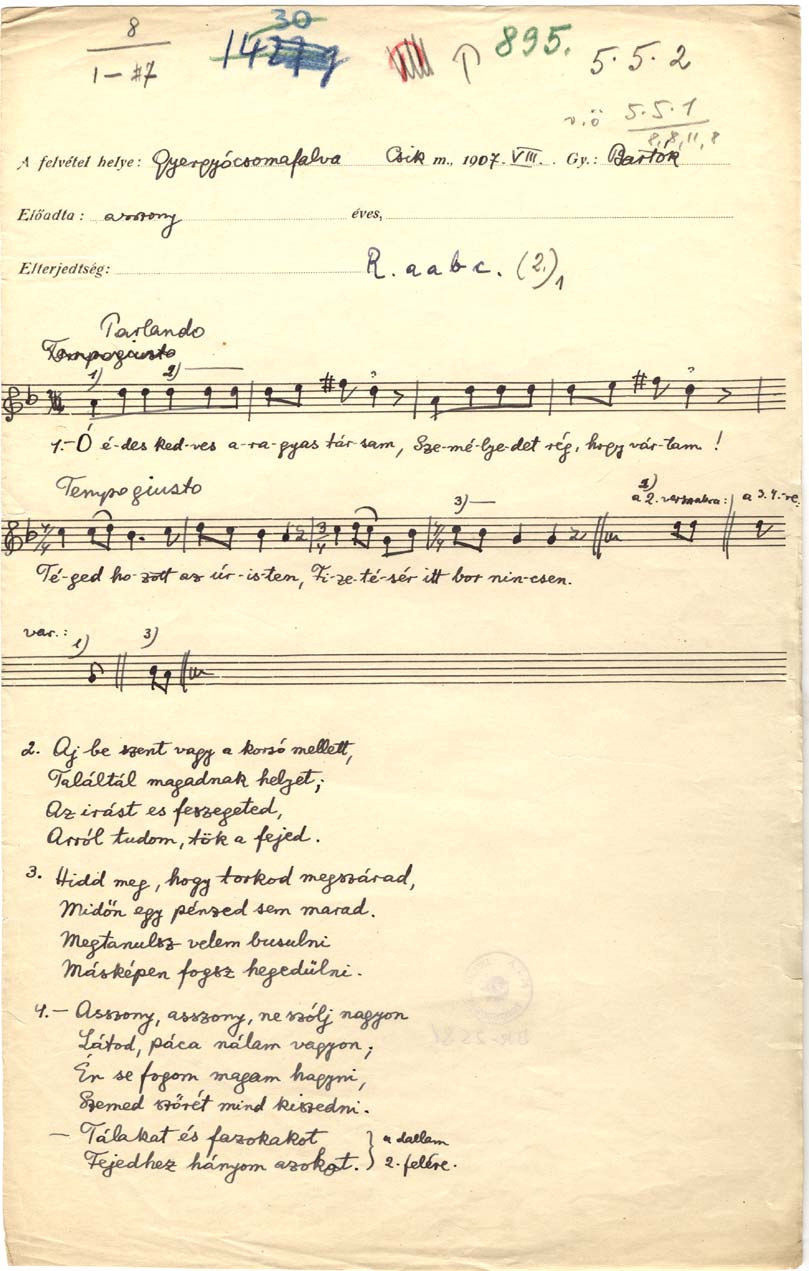 8
1 – #7
30
895.
5.5.2
v.ö 5.5.1
8, 8, 11, 8
A felvétel helye: Gyergyócsomafalva Csik m., 1907. VIII. Gy.: Bartók
Előadta: asszony éves,
Elterjedtség: R. a a b c. (2.)1
Parlando
Tempogiusto
1) 2)
1.- Ó é-des ked-ves a-ra-gyas tár-sam, Sze-mé-lye-det rég, hogy vár-tam!
Tempogiusto
3) a 2. versszakra: a 3. 4.-re:
Té-ged ho-zott az úr-is-ten, Fi-ze-té-sér itt bor nin-csen.
var.: 1) 3)
2. Aj be szent vagy a korsó mellett,
Találtál magadnak helyet;
Az irást es feszegeted,
Arról tudom, tök a fejed.
3. Hidd meg, hogy torkod megszárad,
Midőn egy pénzed sem marad.
Megtanulsz velem busulni
Másképen fogsz hegedülni.
4. – Asszony, asszony, ne szólj nagyon
Látod, páca nálam vagyon;
Én se fogom magam hagyni,
Szemed szőrét mind kiszedni.
– Tálakat és fazokakot } a dallam
Fejedhez hányom azokot. } 2. felére.